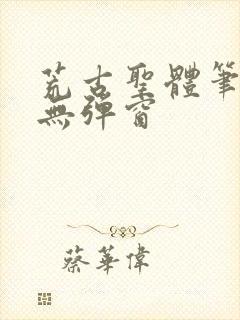 荒古聖體筆
無彈窗
蔡華偉